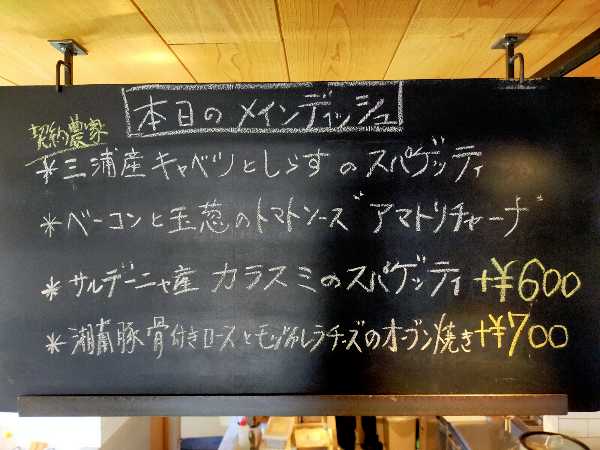 本日のメインディッシュ
契約農家
*三浦産キャベツとしらすのスパゲッティ
*ベーコンと玉葱のトマトソース"アマトリチャーナ"
*サルデーニャ産 カラスミのスパゲッティ +¥600
*湘南豚骨付きロースとモッツァレラチーズのオーブン焼き+¥700